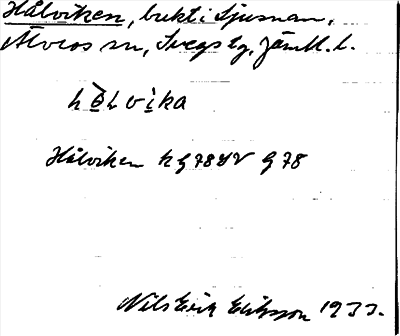 Hålviken, bukt i Ljusnan,
Älvros sn, Svegs tg, Jämtl. l.
hòlvika
Hålviken k G78SV G78
Nils Erik Eliasson 1933.